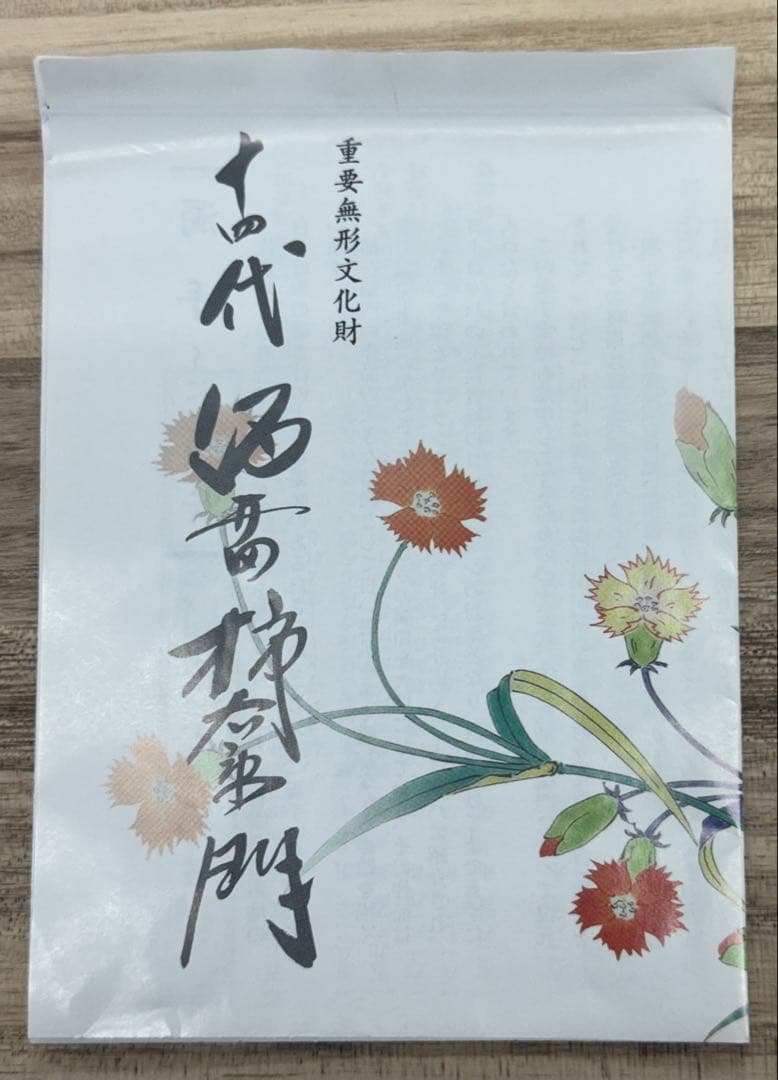 重要無形文化財
十四代 酒井田柿右衛門